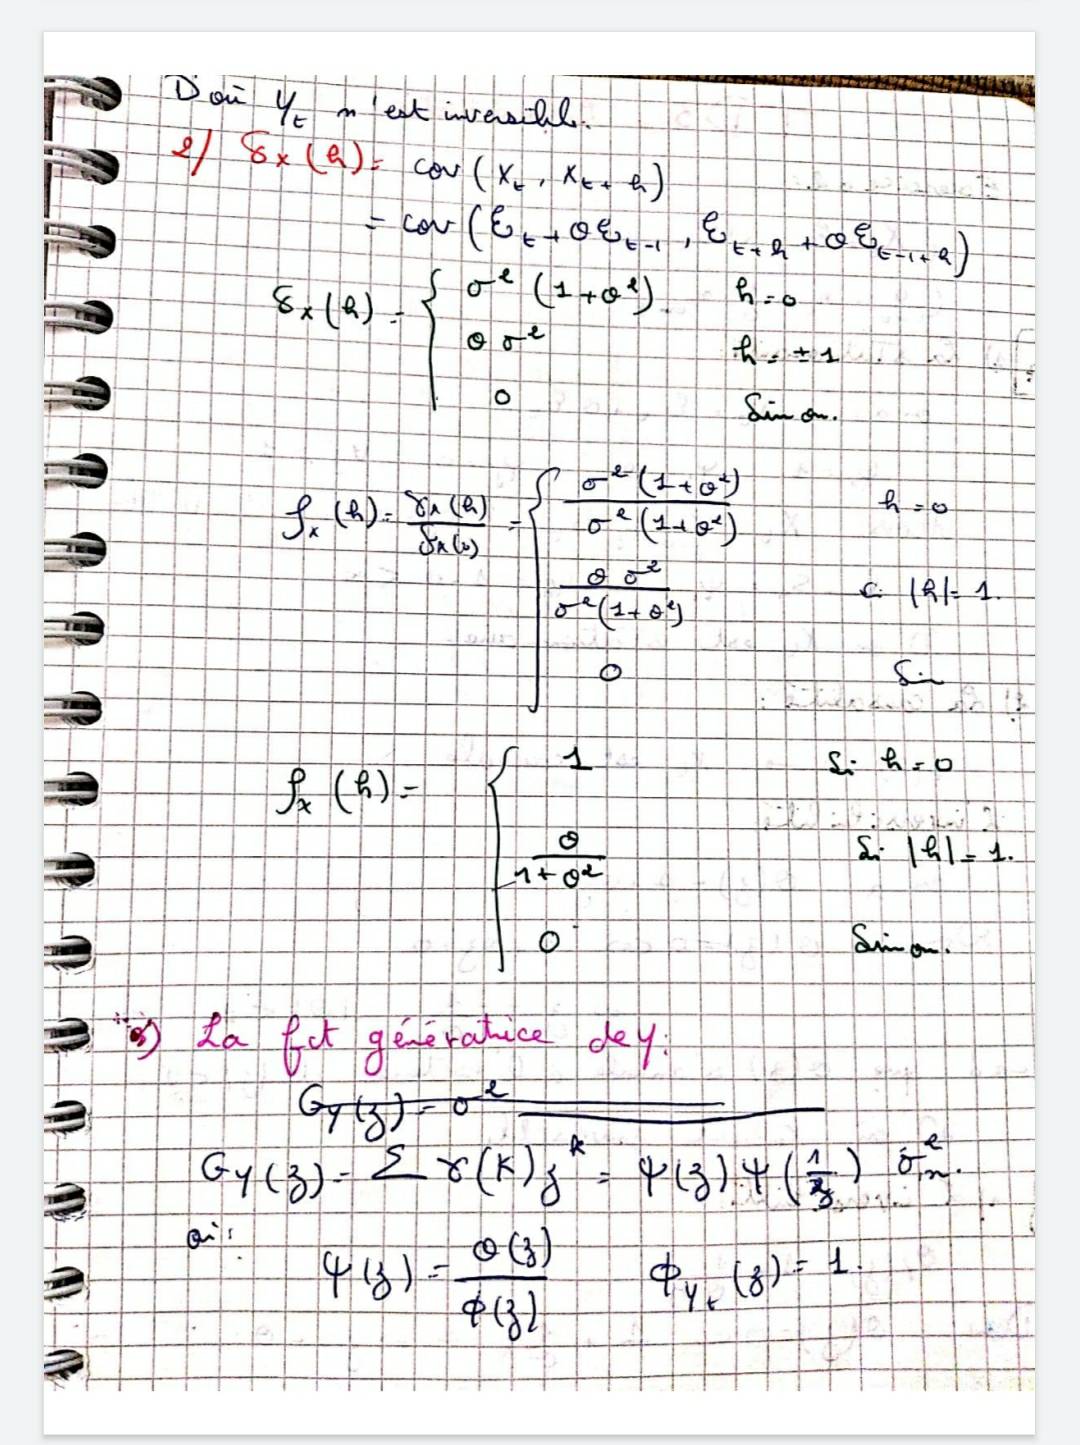 D'où Y_t n'est inversible.
2/ γ_x(h) = cov(X_t, X_{t+h})
= cov(ε_t + θε_{t-1}, ε_{t+h} + θε_{t-1+h})
γ_x(h) = { σ²(1+θ²) h=0
θσ² h=±1
0 Sinon.
ρ_x(h) = γ_x(h)/γ_x(0) = { σ²(1+θ²)/σ²(1+θ²) h=0
θσ²/σ²(1+θ²) |h|=1.
0 Sin
ρ_x(h) = { 1 Si h=0
θ/(1+θ²) Si |h|=1.
0 Sinon.
3) La fct génératrice de y:
G_Y(z) = σ²
G_Y(z) = Σ γ(k) z^k = ψ(z) ψ(1/z) σ²_n.
où:
ψ(z) = θ(z)/ϕ(z) ϕ_{Y_t}(z) = 1.